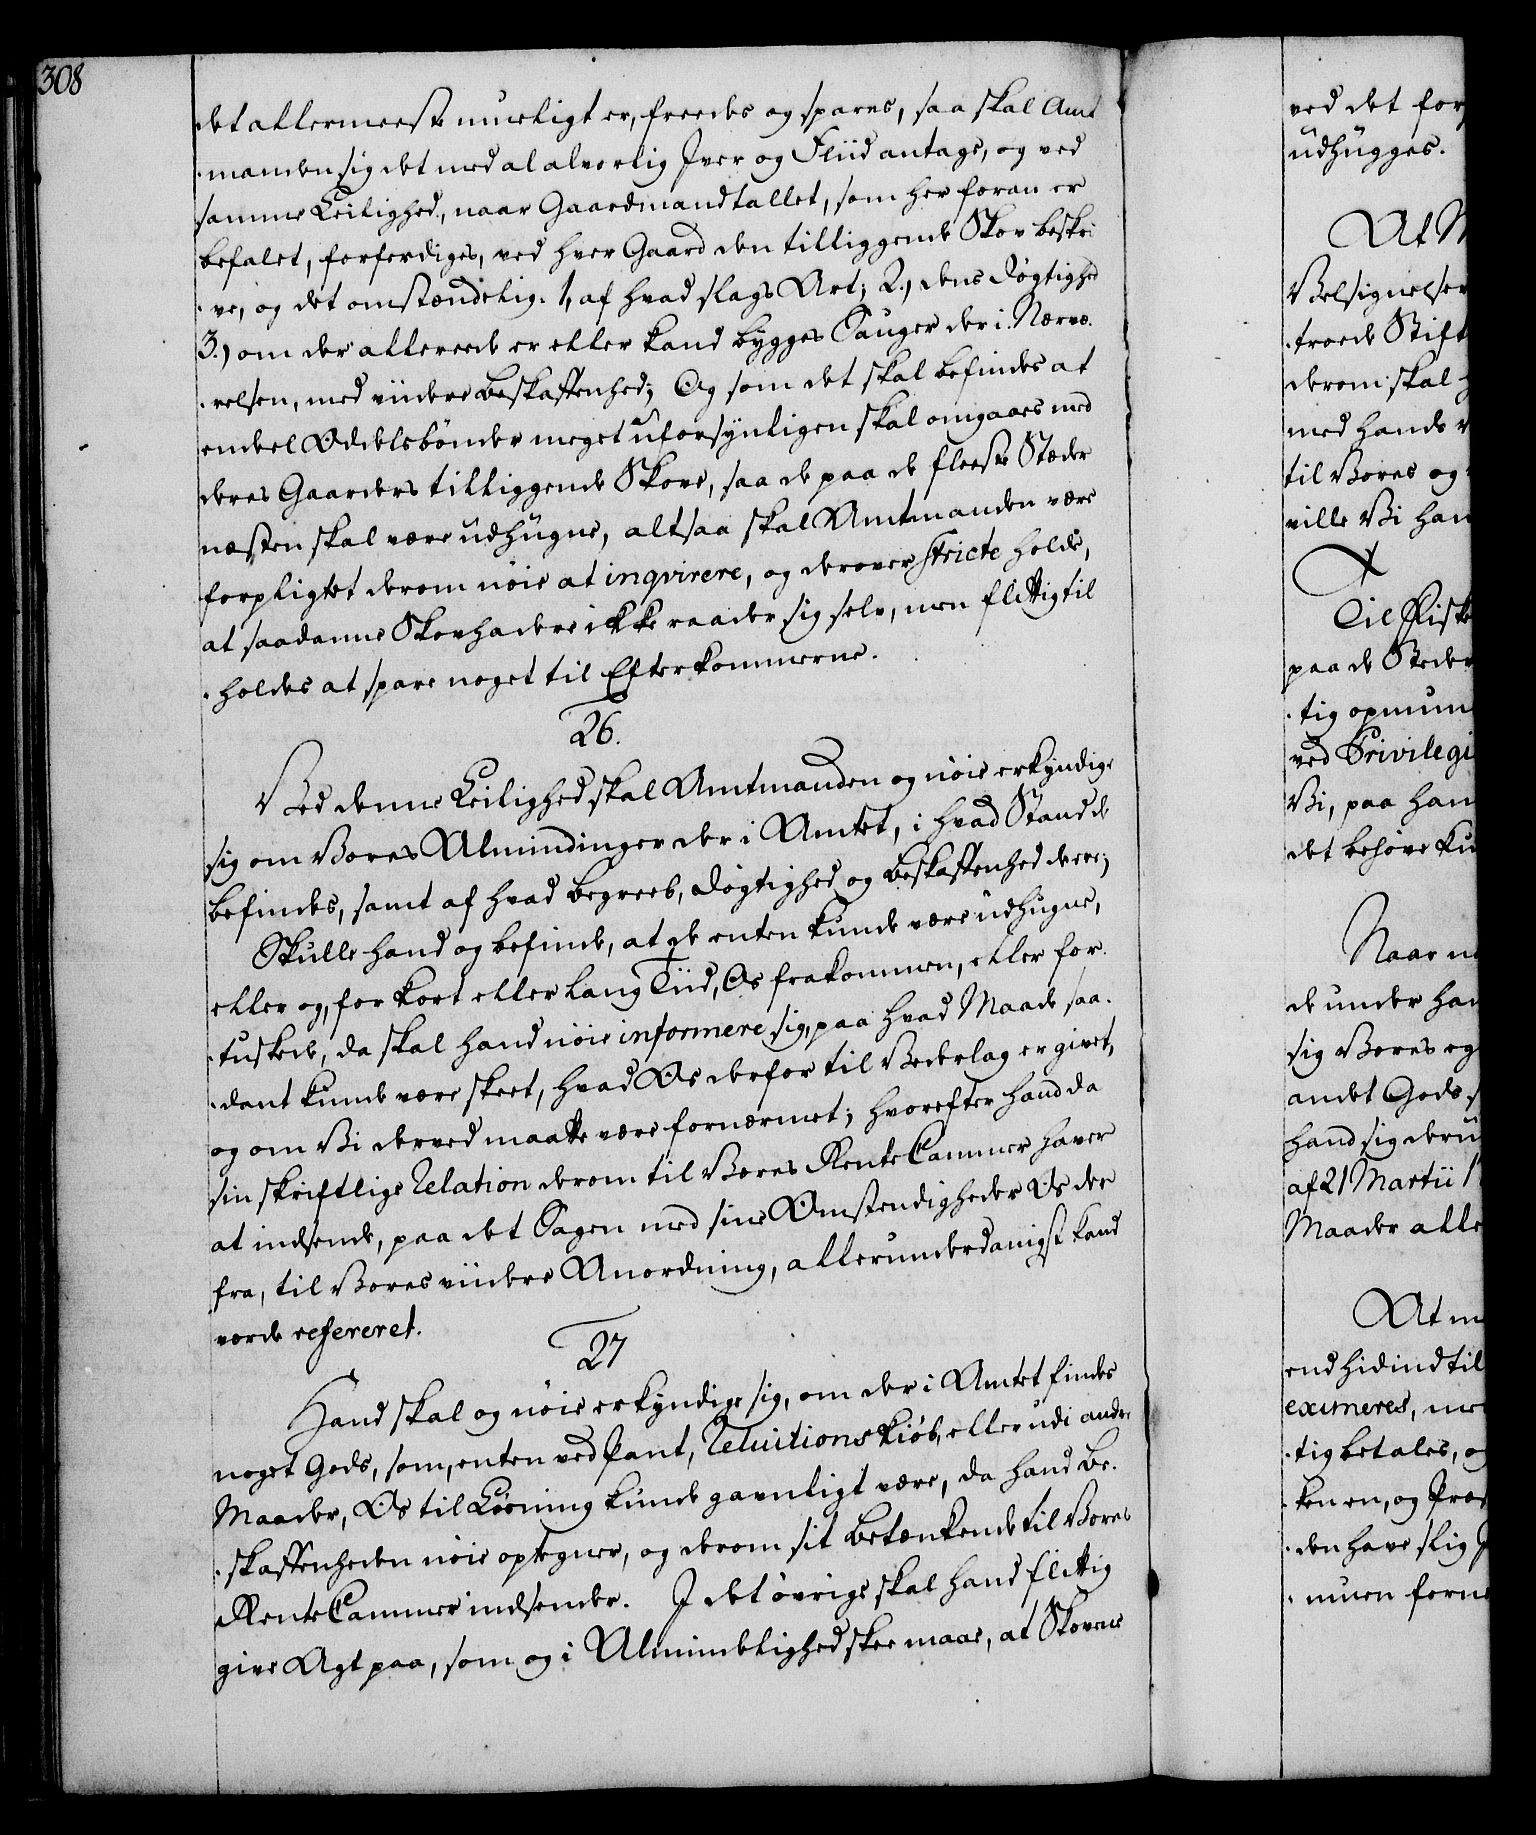 308
det allermeeste mueligt er, freedes og spares, saa skal Amt
manden sig det med al alvorlig Iver og Fliid antage, og ved
samme Leilighed, naar Gaardmandtallet, som her foran er
befalet, forferdiges, ved hver Gaard den tilliggende Skov beskri
ve, og det omstændelig. 1, af hvad slags Art; 2.) dens Døgtighed
3.) om der allereede er eller kand bygges Sauger der i Nærvæ-
relsen, med viidere beskaffenhed; Og som det skal befindes at
endeel Odelsbønder meget uforsynligen skal omgaaes med
deres Gaarders tilliggende Skove, saa de paa de fleeste Stæder
næsten skal være udhugne, altsaa skal Amtmanden være
forpligtet derom nøie at inqvirere, og derover stricte holde,
at saadanne Skovhadere ikke raader sig selv, men flittig til
holdes at spare noget til Efterkommerne.
26.
Ved denne Leilighed skal Amtmanden og nøie erkyndige
sig om Vores Almindinger der i Amtet, i hvad Stand de
befindes, samt af hvad begreeb, døgtighed og beskaffenhed de ere;
Skulle hand og befinde, at de enten kunde være udhugne,
eller og, for kort eller lang Tiid, Os frakommen, eller for-
tuskede, da skal hand nøie informere sig, paa hvad Maade saa-
dant kunde være skeet, hvad Os derfor til Vederlag er givet,
og om Vi derved maatte være fornærmet; hvorefter hand da
sin skriftlige Relation derom til Vores Rente Cammer haver
at indsende, paa det Sagen med sine Omstendigheder Os der
fra, til Vores viidere Anordning, allerunderdanigst kand
vorde refereret.
27
Hand skal og nøie erkyndige sig, om der i Amtet findes
noget Gods, som, enten ved Pant, Reluitions kiøb, eller udi andre
Maader, Os til Løsning kunde gavnligt være, da hand be-
skaffenheden nøie optegner, og derom sit betænkende til Vores
Rente Cammer indsender. I det øvrige skal hand flittig
give Agt paa, som og i Almindelighed skee maae, at Skovene
ved det for
udhugges.
At
Velsignelser
troede Stift
derom skal
med hands
til Vores og
ville Vi han
Til Fiske
paa de Steder
tig opmun
ved Privilegi
Vi, paa han
det behøve ku
Naar
de under han
sig Vores eg
andet Gods
hand sig deru
af 21 Martii 1
Maader alle
At
end hidindtil
eximeres, me
tig betales, og
ken en, og Præ
den have slig
muen forne